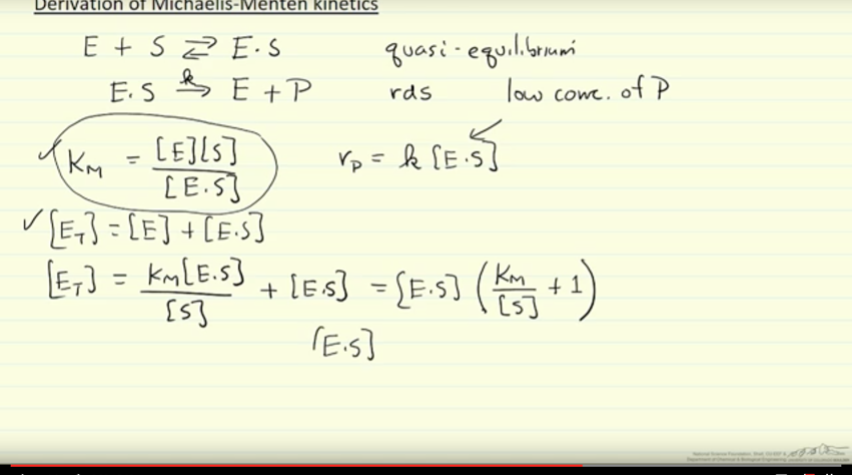 Derivation of Michaelis-Menten kinetics
E + S ⇄ E·S quasi-equilibrium
E·S k→ E + P rds low conc. of P
✓ K_M = [E][S] / [E·S] r_P = k [E·S]
✓ [E_T] = [E] + [E·S]
[E_T] = K_M[E·S] / [S] + [E·S] = [E·S] (K_M / [S] + 1)
[E·S]